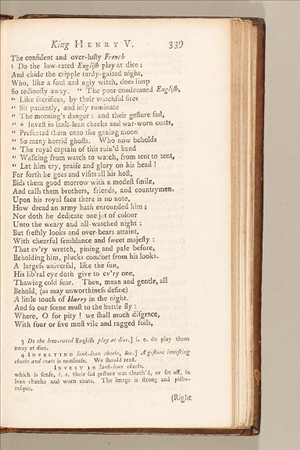 King HENRY V. 339
The confident and over-lusty French
3 Do the low-rated English play at dice;
And chide the cripple tardy-gaited night,
Who, like a foul and ugly witch, does limp
So tediously away. “ The poor condemned English,
“ Like sacrifices, by their watchful fires
“ Sit patiently, and inly ruminate
“ The morning's danger: and their gesture sad,
“ 4 Invest in lank-lean cheeks and war-worn coats,
“ Presented them unto the gazing moon
“ So many horrid ghosts. Who now beholds
“ The royal captain of this ruin'd band
“ Walking from watch to watch, from tent to tent,
“ Let him cry, praise and glory on his head!
For forth he goes and visits all his host,
Bids them good morrow with a modest smile,
And calls them brothers, friends, and countrymen.
Upon his royal face there is no note,
How dread an army hath enrounded him;
Nor doth he dedicate one jot of colour
Unto the weary and all-watched night:
But freshly looks and over-bears attaint,
With chearful semblance and sweet majesty:
That ev'ry wretch, pining and pale before,
Beholding him, plucks comfort from his looks.
A largess universal, like the sun,
His lib'ral eye doth give to ev'ry one,
Thawing cold fear. Then, mean and gentle, all
Behold, (as may unworthiness define)
A little touch of Harry in the night.
And so our scene must to the battle fly:
Where, O for pity! we shall much disgrace,
With four or five most vile and ragged foils,
3 Do the low-rated English play at dice.] i. e. do play them
away at dice.
4 INVESTING lank-lean cheeks, &c.] A gesture investing
cheeks and coats is nonsense. We should read,
INVEST IN lank-lean cheeks.
which is sense, i. e. their sad gesture was cloath'd, or set off, in
lean cheeks and worn coats. The image is strong and pictu-
resque.
(Right